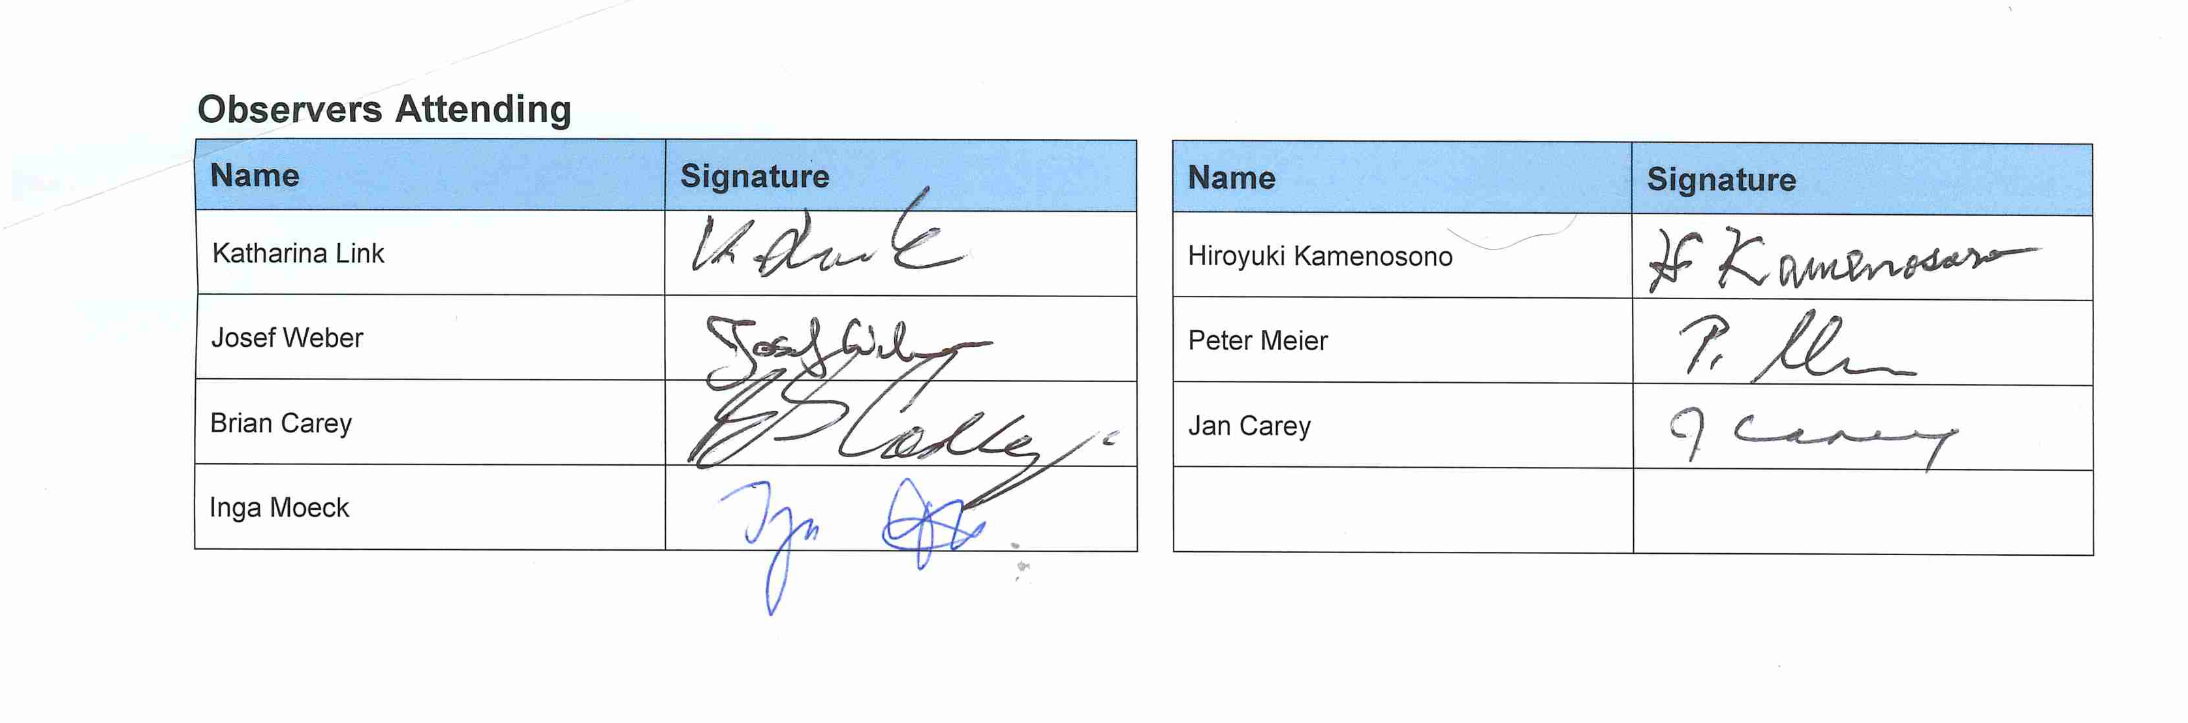 Observers Attending
Name Signature
Katharina Link K. Link
Josef Weber Josef Weber
Brian Carey
Inga Moeck Inga
Name Signature
Hiroyuki Kamenosono H Kamenosono
Peter Meier P.
Jan Carey J Carey